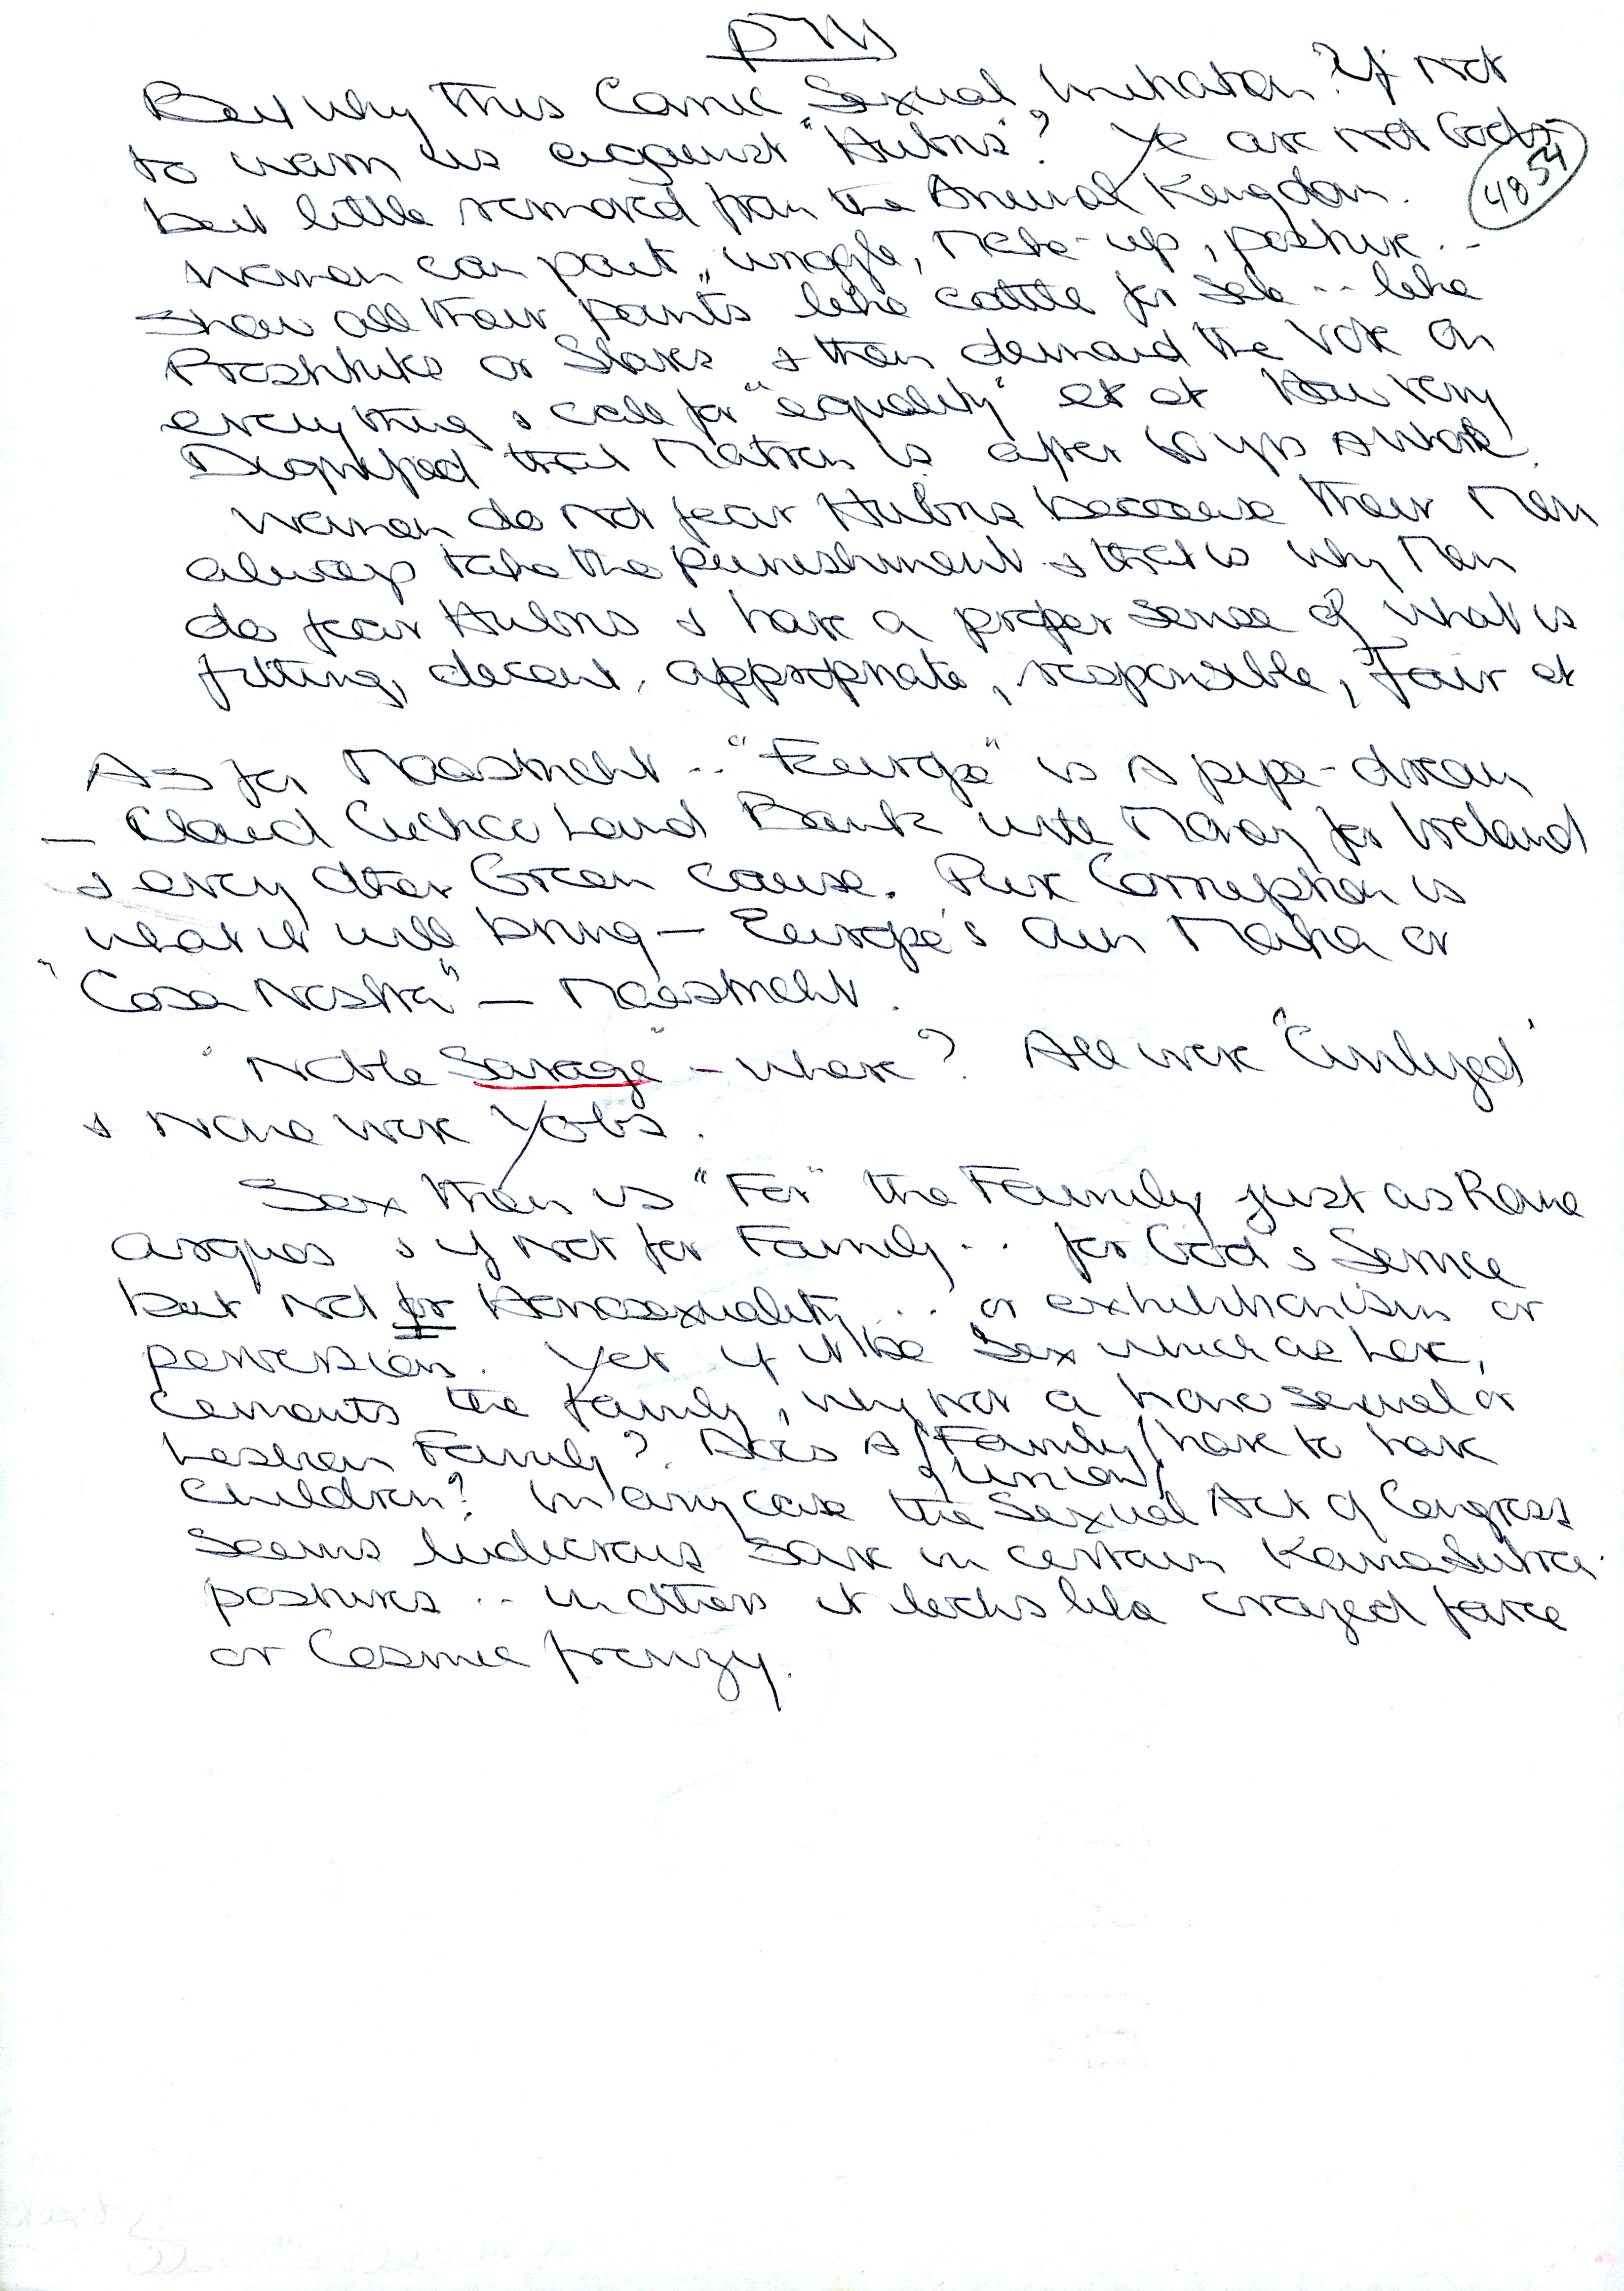 But why this Comic Sexual Imitation? If not
to warn us against "Hubris"? Ye are not Gods
4854
but little removed from the Animal Kingdom.
Women can pout, wiggle, make-up, posture ..
show all their "points" like cattle for sale .. like
Prostitutes or Slaves & then demand the Vote on
everything & call for "equality" et et How very
Dignified that Matron is after 60 yrs a
Women do not fear Hubris because their Men
always take the punishment & that is why Men
do fear Hubris & have a proper sense of what is
fitting, decent, appropriate, responsible, Fair et
As for Maastricht .. "Europe" is a pipe-dream
— Cloud Cuckoo Land Bank with Money for Ireland
& every other Green cause. Pure Corruption is
what it will bring — Europe's own Mafia or
"Cosa Nostra" — Maastricht.
"Noble Savage" — where? All were "Civilized"
& None were Yobs.
Sex then is "For" the Family just as Rome
argues & if not for Family .. for God's Service
but not for Homosexuality ... or exhibitionism or
perversion. Yet if it be Sex which as here,
cements the family, why not a homosexual or
Lesbian Family? Does a /Family/ have to have
of Union/
Children? In any case the Sexual Act of Congress
seems ludicrous save in certain KamaSutra
postures .. in others it looks like crazed farce
or Cosmic frenzy.